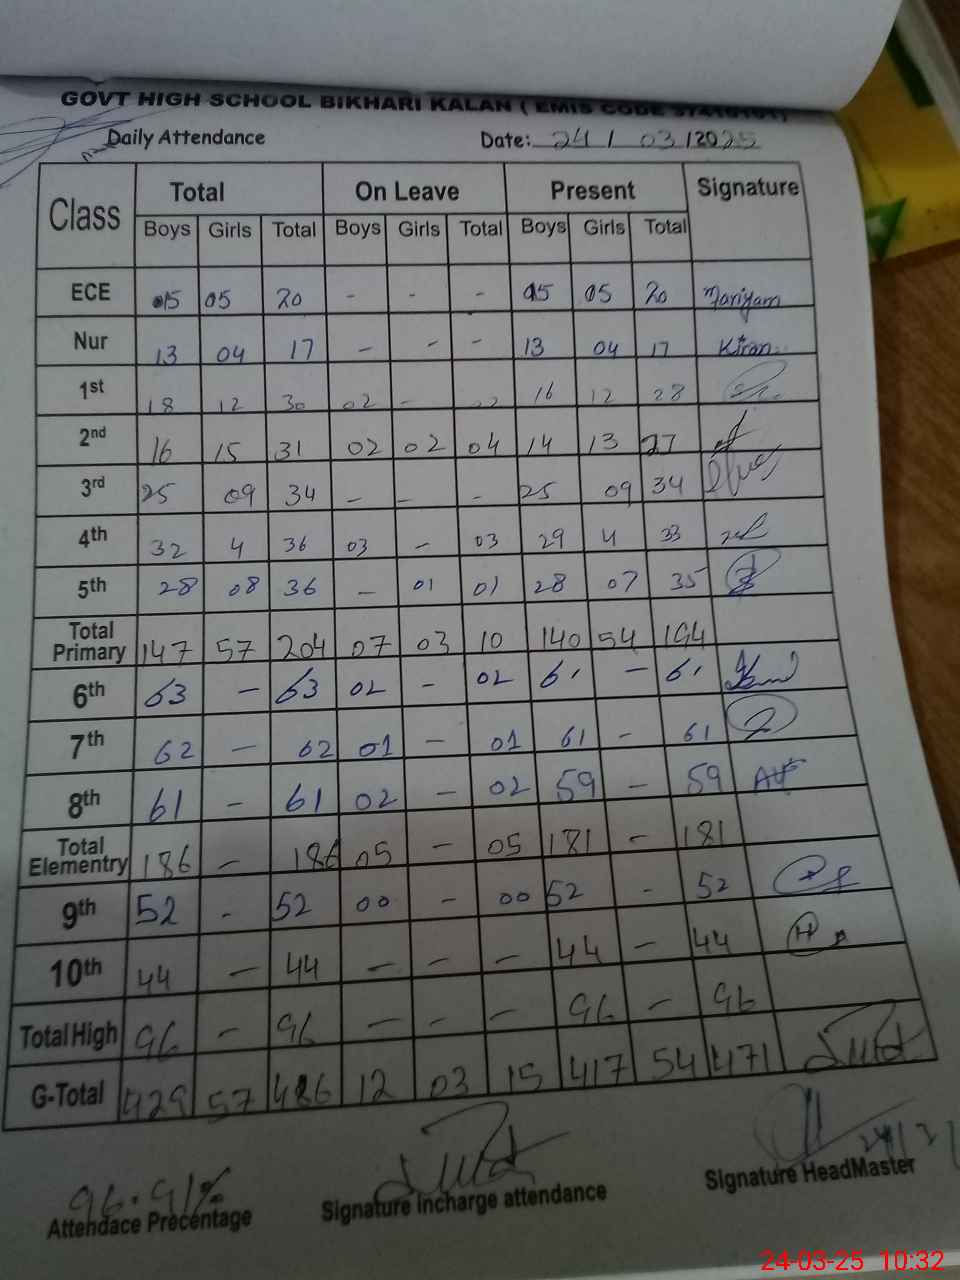 GOVT HIGH SCHOOL BIKHARI KALAN ( EMIS CODE 37410101)
Daily Attendance Date: 24 / 03 /2025
Class Total On Leave Present Signature
Boys Girls Total Boys Girls Total Boys Girls Total
ECE 15 05 20 - - - 15 05 20 Mariyam
Nur 13 04 17 - - - 13 04 17 Kiran
1st 18 12 30 02 - 02 16 12 28
2nd 16 15 31 02 02 04 14 13 27
3rd 25 09 34 - - - 25 09 34
4th 32 4 36 03 - 03 29 4 33
5th 28 08 36 - 01 01 28 07 35
Total Primary 147 57 204 07 03 10 140 54 194
6th 63 - 63 02 - 02 61 - 61
7th 62 - 62 01 - 01 61 - 61
8th 61 - 61 02 - 02 59 - 59
Total Elementry 186 - 186 05 - 05 181 - 181
9th 52 - 52 00 - 00 52 - 52
10th 44 - 44 - - - 44 - 44
Total High 96 - 96 - - - 96 - 96
G-Total 429 57 486 12 03 15 417 54 471
96.91%
Attendace Precentage Signature incharge attendance Signature HeadMaster
24-03-25 10:32